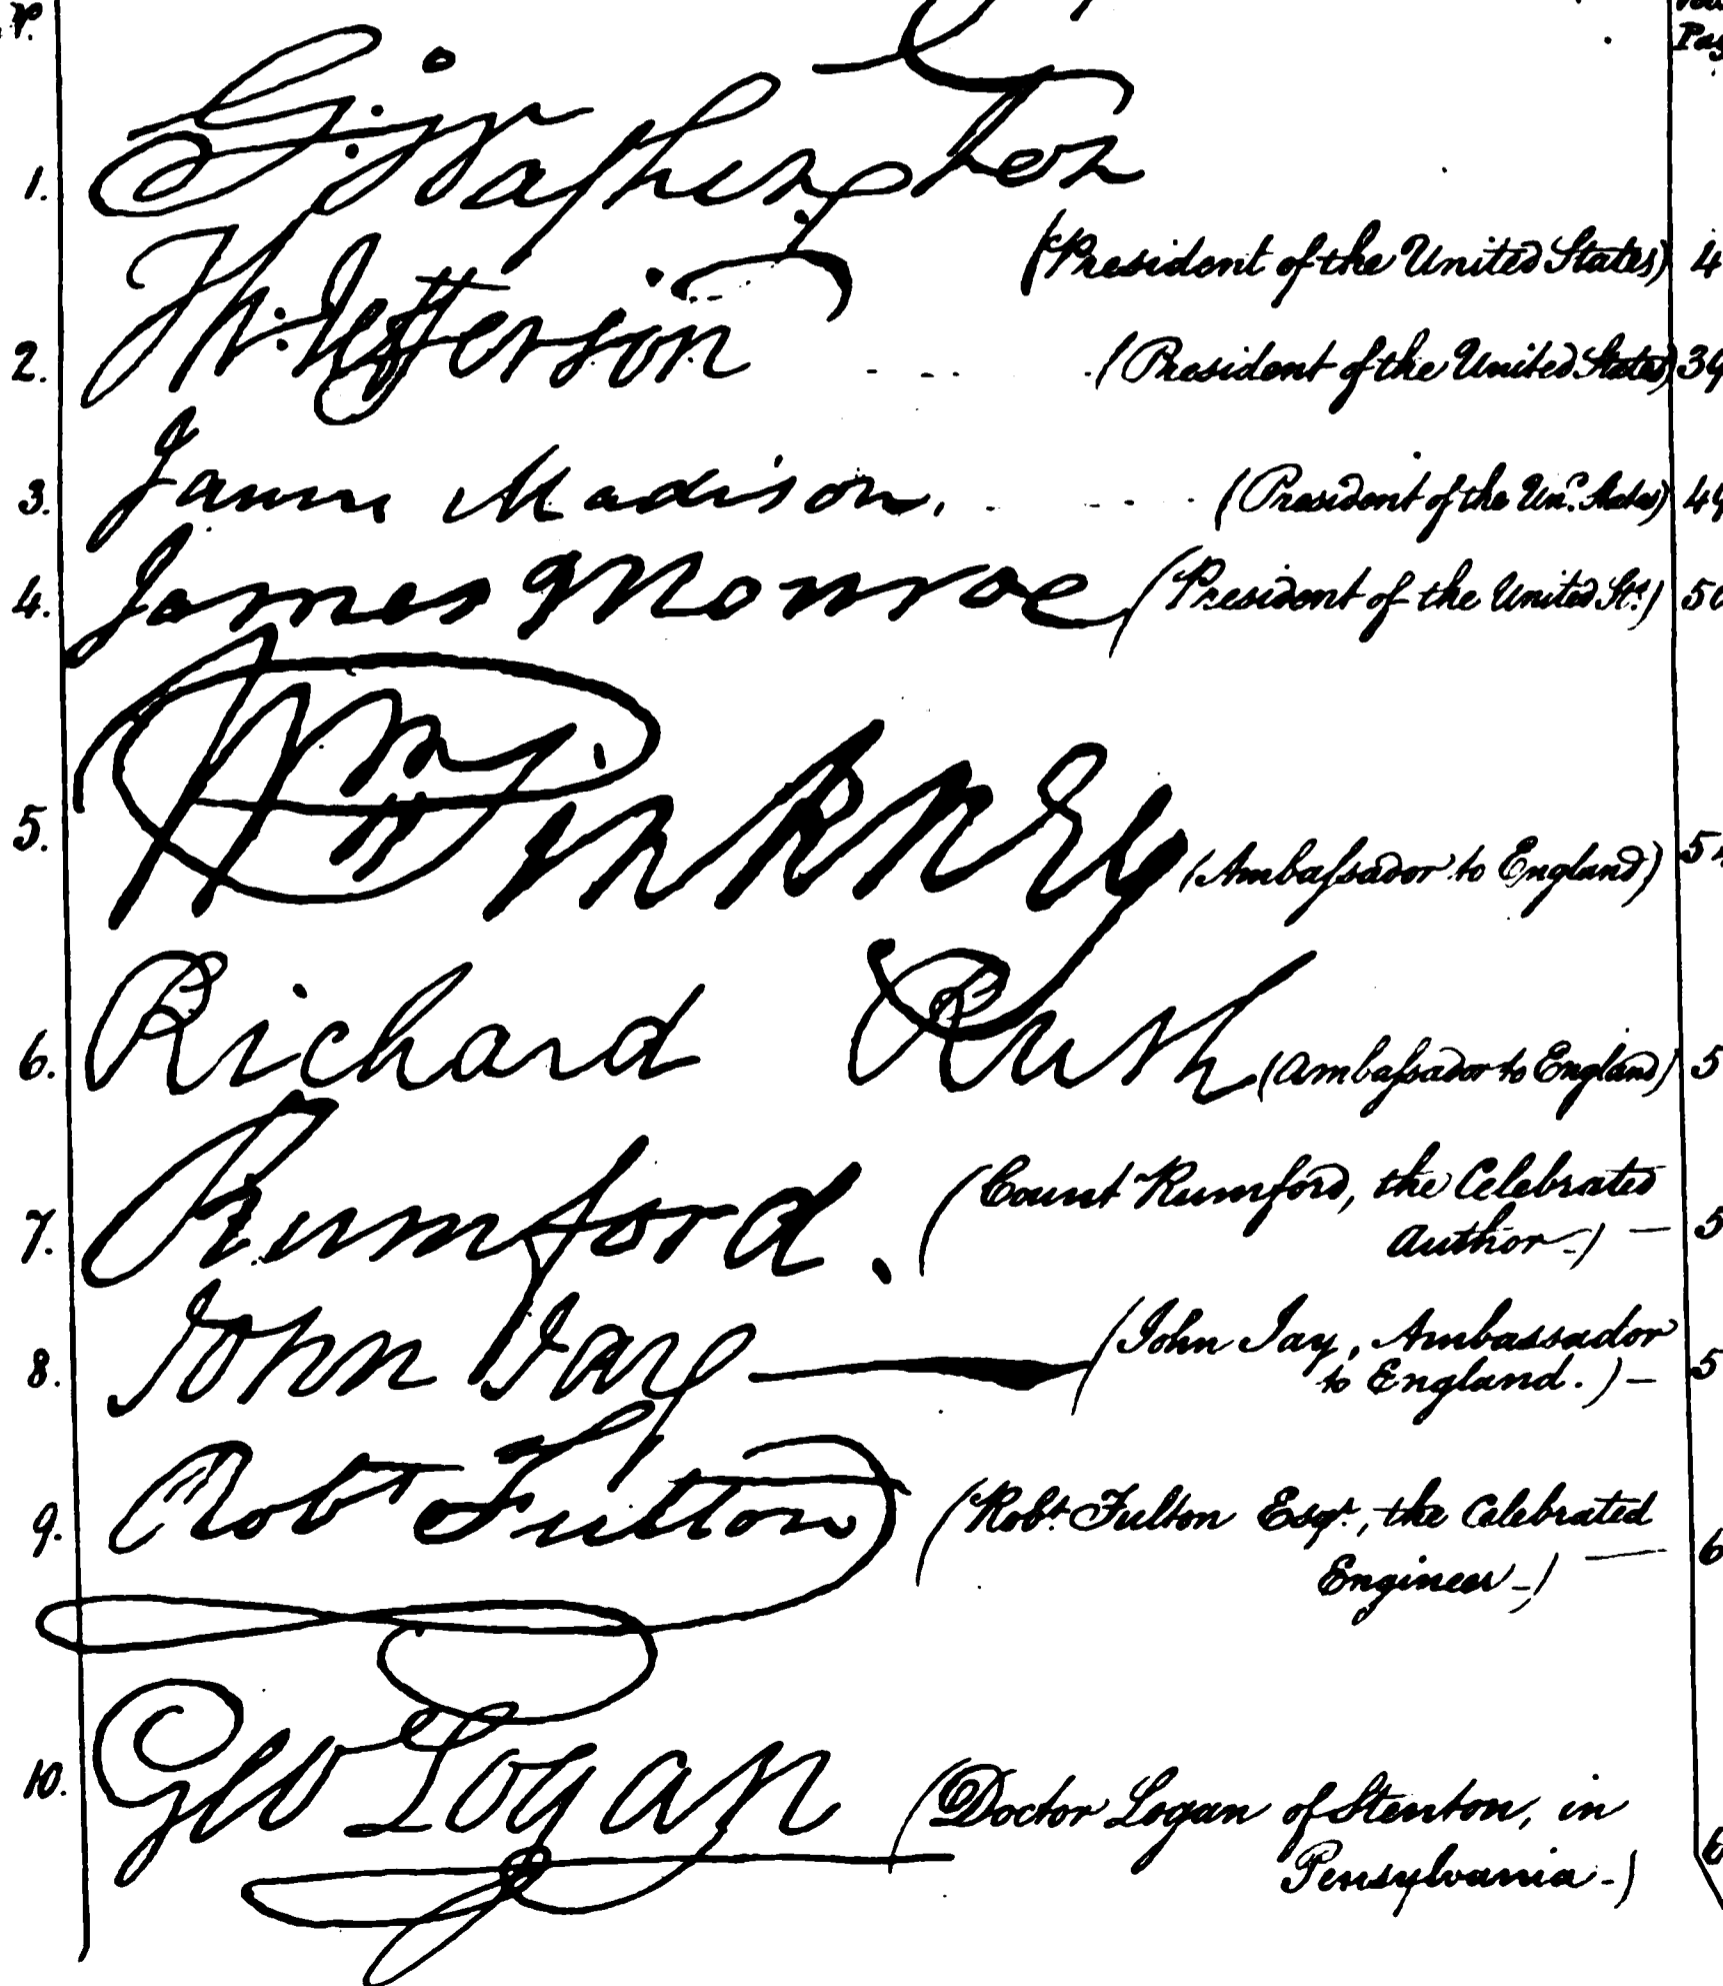 1. G:Washington
(President of the United States) 4
2. Th:Jefferson (President of the United States)
3. James Madison. (President of the Un.d States)
4. James Monroe (President of the United St.s)
5. Wm Pinkney (Ambassador to England)
6. Richard Rush (Ambassador to England) 5
7. Rumford. (Count Rumford, the Celebrated
Author-) 5
8. John Jay (John Jay, Ambassador
to England.) 5
9. Robt Fulton (Robt. Fulton Esqr., the Celebrated
Engineer-) 6
10. Geo Logan (Doctor Logan of Stenton, in
Pensylvania-) 6